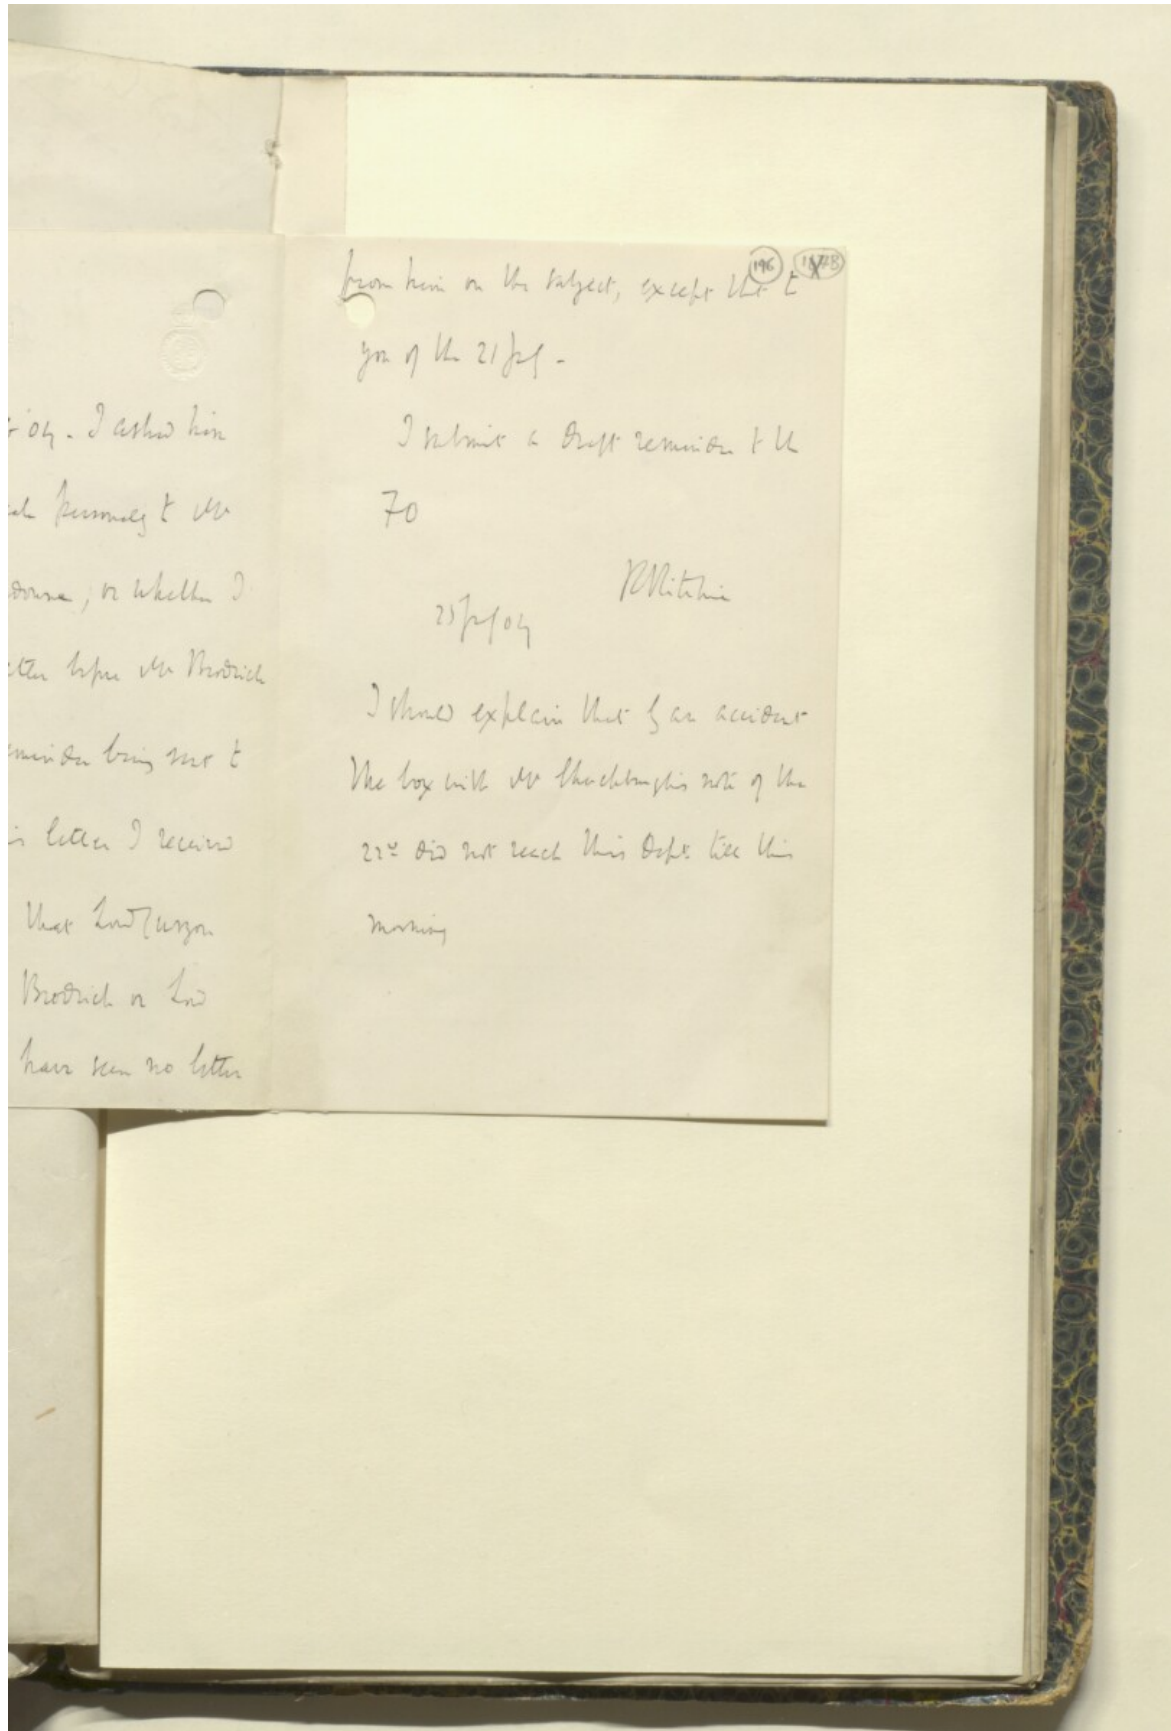 & 04. I asked him
personally to Mr
; or whether I
before Mr Brodrick
being sent to
letter I received
that Lord Curzon
Brodrick or Lord
have seen no letter
196
from him on the subject, except that to
you of the 21
I submit a draft reminder to the
FO
R Ritchie
04
I should explain that by an accident
the box with Mr Shuckburgh's note of the
22nd did not reach this Dept till this
morning